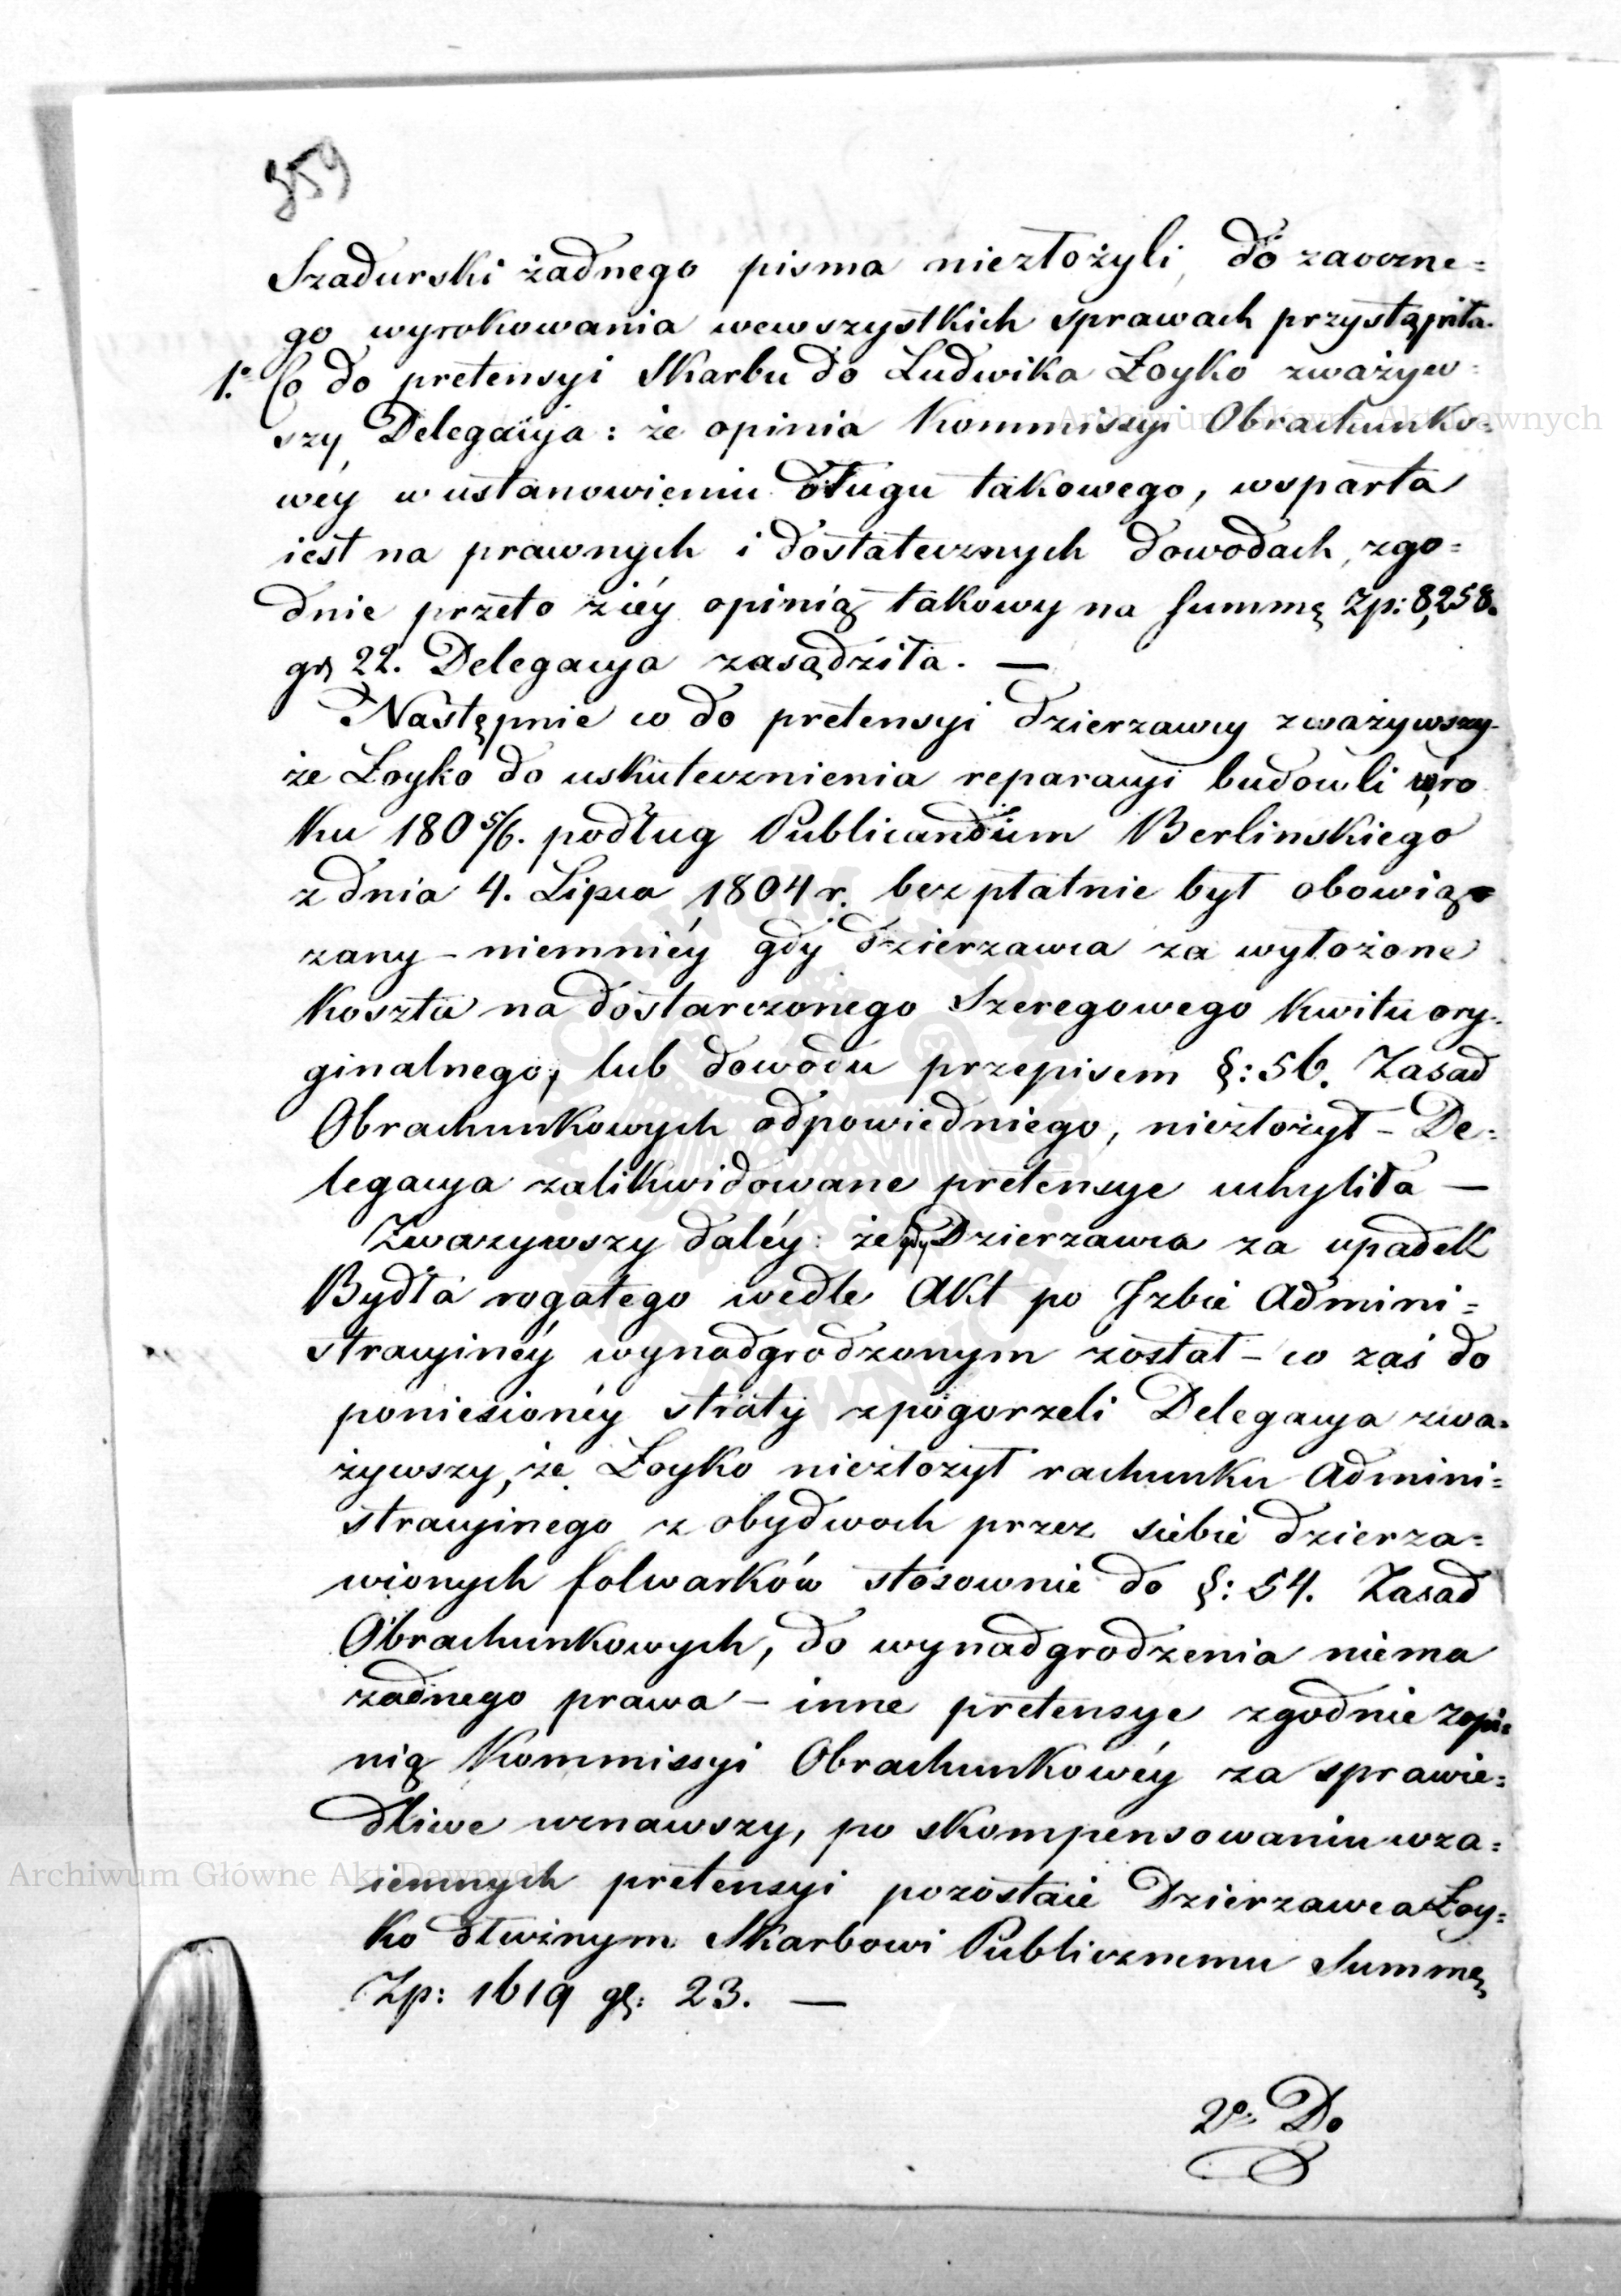 359
Szadurski żadnego pisma niezłożyli, do zaoczne=
go wyrokowania wewszystkich sprawach przystąpiła.
1o Co do pretensyi Skarbu do Ludwika Łoyko zważyw=
szy Delegacyja: że opinia Kommissyi Obrachunko=
wéy w ustanowieniu długu takowego, wsparta
iest na prawnych i dostatecznych dowodach, zgo=
dnie przeto ziéy opinią takowy na summę Zp: 8,258.
gr 22. Delegacya zasądziła. —
Następnie co do pretensyi dzierzawcy zważywszy
że Łoyko do uskutecznienia reparacyi budowli wro
ku 180 5/6. podług Publicandum Berlinskiego
z dnia 4. Lipca 1804 r. bezpłatnie był obowią
zany – niemniéy gdy dzierzawca za wyłożone
Koszta na dostarczonego Szeregowego Kwitu ory=
ginalnego, lub dowodu przepisem §: 56. Zasad
Obrachunkowych odpowiedniego, niezłożył – De=
legacya zalikwidowane pretensye uchyliła —
Zwazywszy daléy: że gdy Dzierzawca za upadek
Bydła rogatego wedle Akt po Izbie Admini=
stracyinéy wynadgrodzonym został – co zaś do
poniesionéy straty zpogorzeli Delegacya zwa=
żywszy, że Łoyko niezłozył rachunku Admini=
stracyinego z obydwoch przez siebie dzierza=
wionych folwarków stosownie do §: 54. Zasad
Obrachunkowych, do wynadgrodzenia niema
zadnego prawa – inne pretensye zgodnie zopi=
nią Kommissyi Obrachunkowéy za sprawie=
dliwe uznawszy, po skompensowaniu wza=
iemnych pretensyi pozostaie Dzierzawca Łoy=
ko dłużnym Skarbowi Publicznemu Summę
Zp: 1619 gr: 23. —
2o Do
Archiwum Główne Akt Dawnych
Archiwum Główne Akt Dawnych